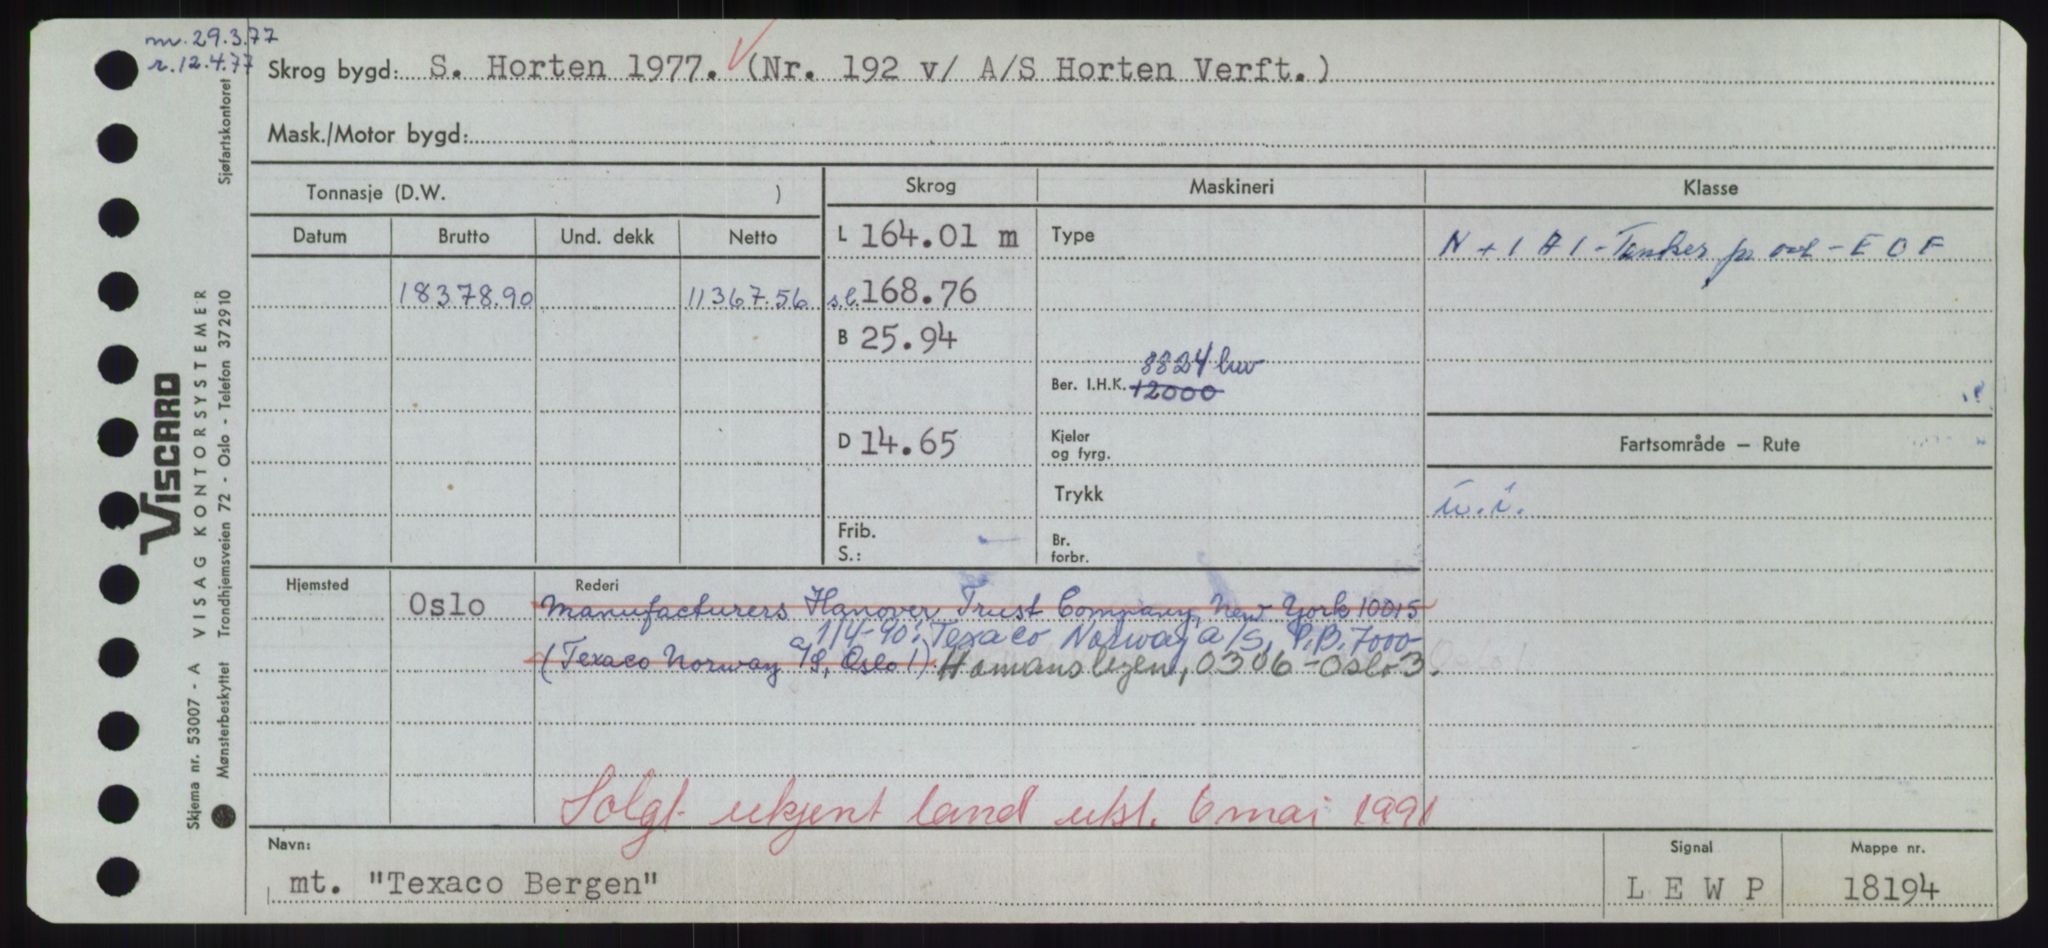 m. 29.3.77
r. 12.4.77
Skrog bygd: S. Horten 1977. (Nr. 192 v/ A/S Horten Verft.)
Mask./Motor bygd:
Tonnasje (D.W. )
Skrog
Maskineri
Klasse
Datum
Brutto
Und. dekk
Netto
L 164.01 m
Type
N + 1 A 1 - Tanker for - E O F
18378.90
11367.56
s.l. 168.76
B 25.94
8824 hw
Ber. I.H.K. 12000
D 14.65
Kjeler
og fyrg.
Fartsområde — Rute
Trykk
u.i.
Frib.
S.:
Br.
forbr.
Hjemsted
Oslo
Rederi
Manufacturers Hanover Trust Company, New York 10015
1/4-90: Texaco Norway a/s, P.B. 7000
(Texaco Norway a/s, Oslo 1). Homansbyen, 0306 - Oslo 3.
Solgt ukjent land utsl. 6 mai 1991
Navn:
mt. "Texaco Bergen"
Signal
L E W P
Mappe nr.
18194
VISCARD
Skjema nr. 53007 - A VISAG KONTORSYSTEMER
Mønsterbeskyttet Trondhjemsveien 72 - Oslo - Telefon 372910 Sjøfartskontoret